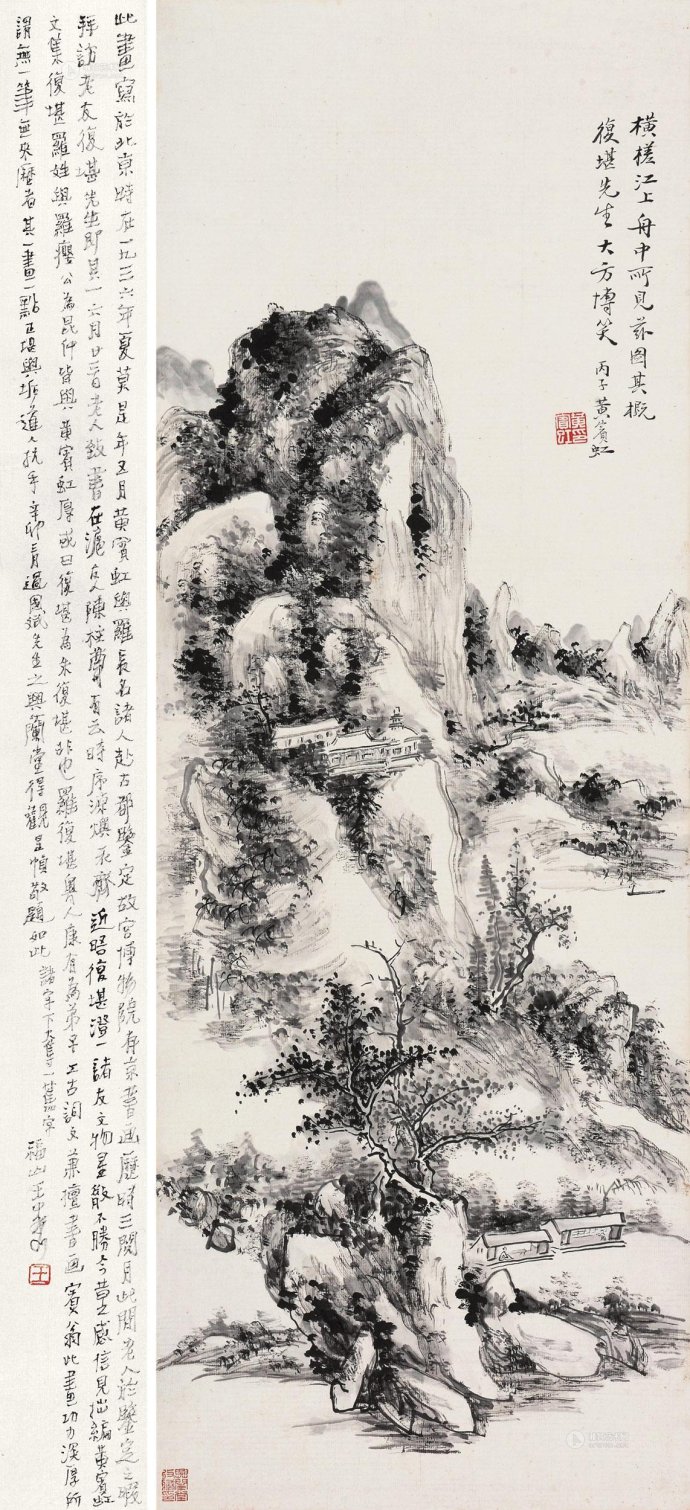 橫槎江上舟中所見茲圖其概
復堪先生大方博笑 丙子黃賓虹
此畫寫於北京時在一九三六年夏莫是年五月黃賓虹與羅長名諸人赴古都鑒定故宮博物院存京書画歷時三閱月此間老人於鑒定之暇
拜訪老友復堪先生即其一六月廿三日老人致書在滬友人陳柱尊有云時序涼燠不齊近晤復堪澄一諸友文物星散不勝今昔之感信見拙編黃賓虹
文集復堪羅姓與羅癭公為昆仲皆與黃賓虹厚或曰復堪為朱復堪非也羅復堪粵人康有為弟子工古詞文兼擅書画賓翁此畫功力深厚所
謂無一筆無來歷者其一畫一點正堪與垢道人抗手辛卯三月過思斌先生之興蘭堂得觀是幀敬題如此 諸字下大奪一舊字 福山王中秀